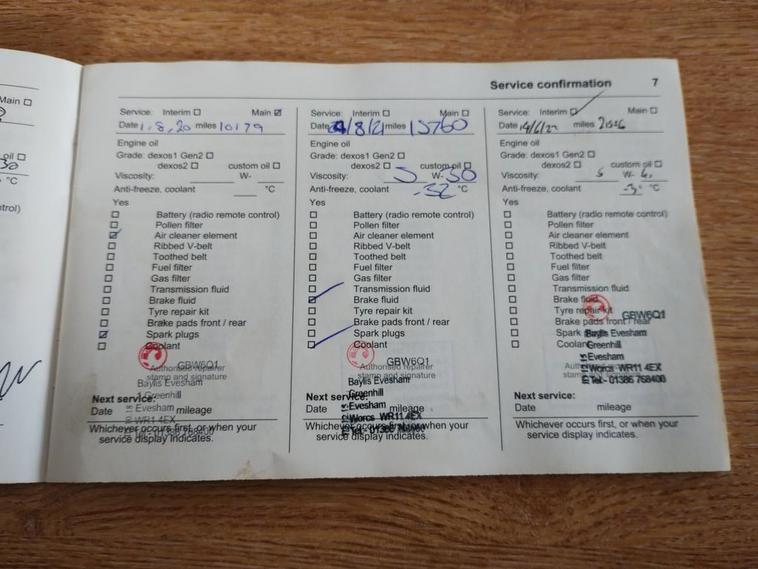 Main
oil
°C
trol)
Service confirmation 7
Service: Interim Main
Date 1.8.20 miles 10179
Engine oil
Grade: dexos1 Gen2
dexos2 custom oil
Viscosity: W-
Anti-freeze, coolant °C
Yes
Battery (radio remote control)
Pollen filter
Air cleaner element
Ribbed V-belt
Toothed belt
Fuel filter
Gas filter
Transmission fluid
Brake fluid
Tyre repair kit
Brake pads front / rear
Spark plugs
Coolant
GBW6Q1
Authorised repairer
stamp and signature
Baylis Evesham
Greenhill
Next service:
Date mileage
Evesham
WR11 4EX
Whichever occurs first, or when your
service display indicates.
Service: Interim Main
Date /8/21 miles 15760
Engine oil
Grade: dexos1 Gen2
dexos2 custom oil
Viscosity: 5 W- 30
Anti-freeze, coolant -32 °C
Yes
Battery (radio remote control)
Pollen filter
Air cleaner element
Ribbed V-belt
Toothed belt
Fuel filter
Gas filter
Transmission fluid
Brake fluid
Tyre repair kit
Brake pads front / rear
Spark plugs
Coolant
GBW6Q1
Authorised repairer
stamp and signature
Baylis Evesham
Greenhill
Next service:
Date mileage
Evesham
Worcs WR11 4EX
Tel- 01386 768400
Whichever occurs first, or when your
service display indicates.
Service: Interim Main
Date miles
Engine oil
Grade: dexos1 Gen2
dexos2 custom oil
Viscosity: 5 W-
Anti-freeze, coolant °C
Yes
Battery (radio remote control)
Pollen filter
Air cleaner element
Ribbed V-belt
Toothed belt
Fuel filter
Gas filter
Transmission fluid
Brake fluid
Tyre repair kit
GBW6Q1
Brake pads front / rear
Spark
Baylis Evesham
Coolant
Greenhill
Evesham
Worcs WR11 4EX
Tel- 01386 768400
Next service:
Date mileage
Whichever occurs first, or when your
service display indicates.